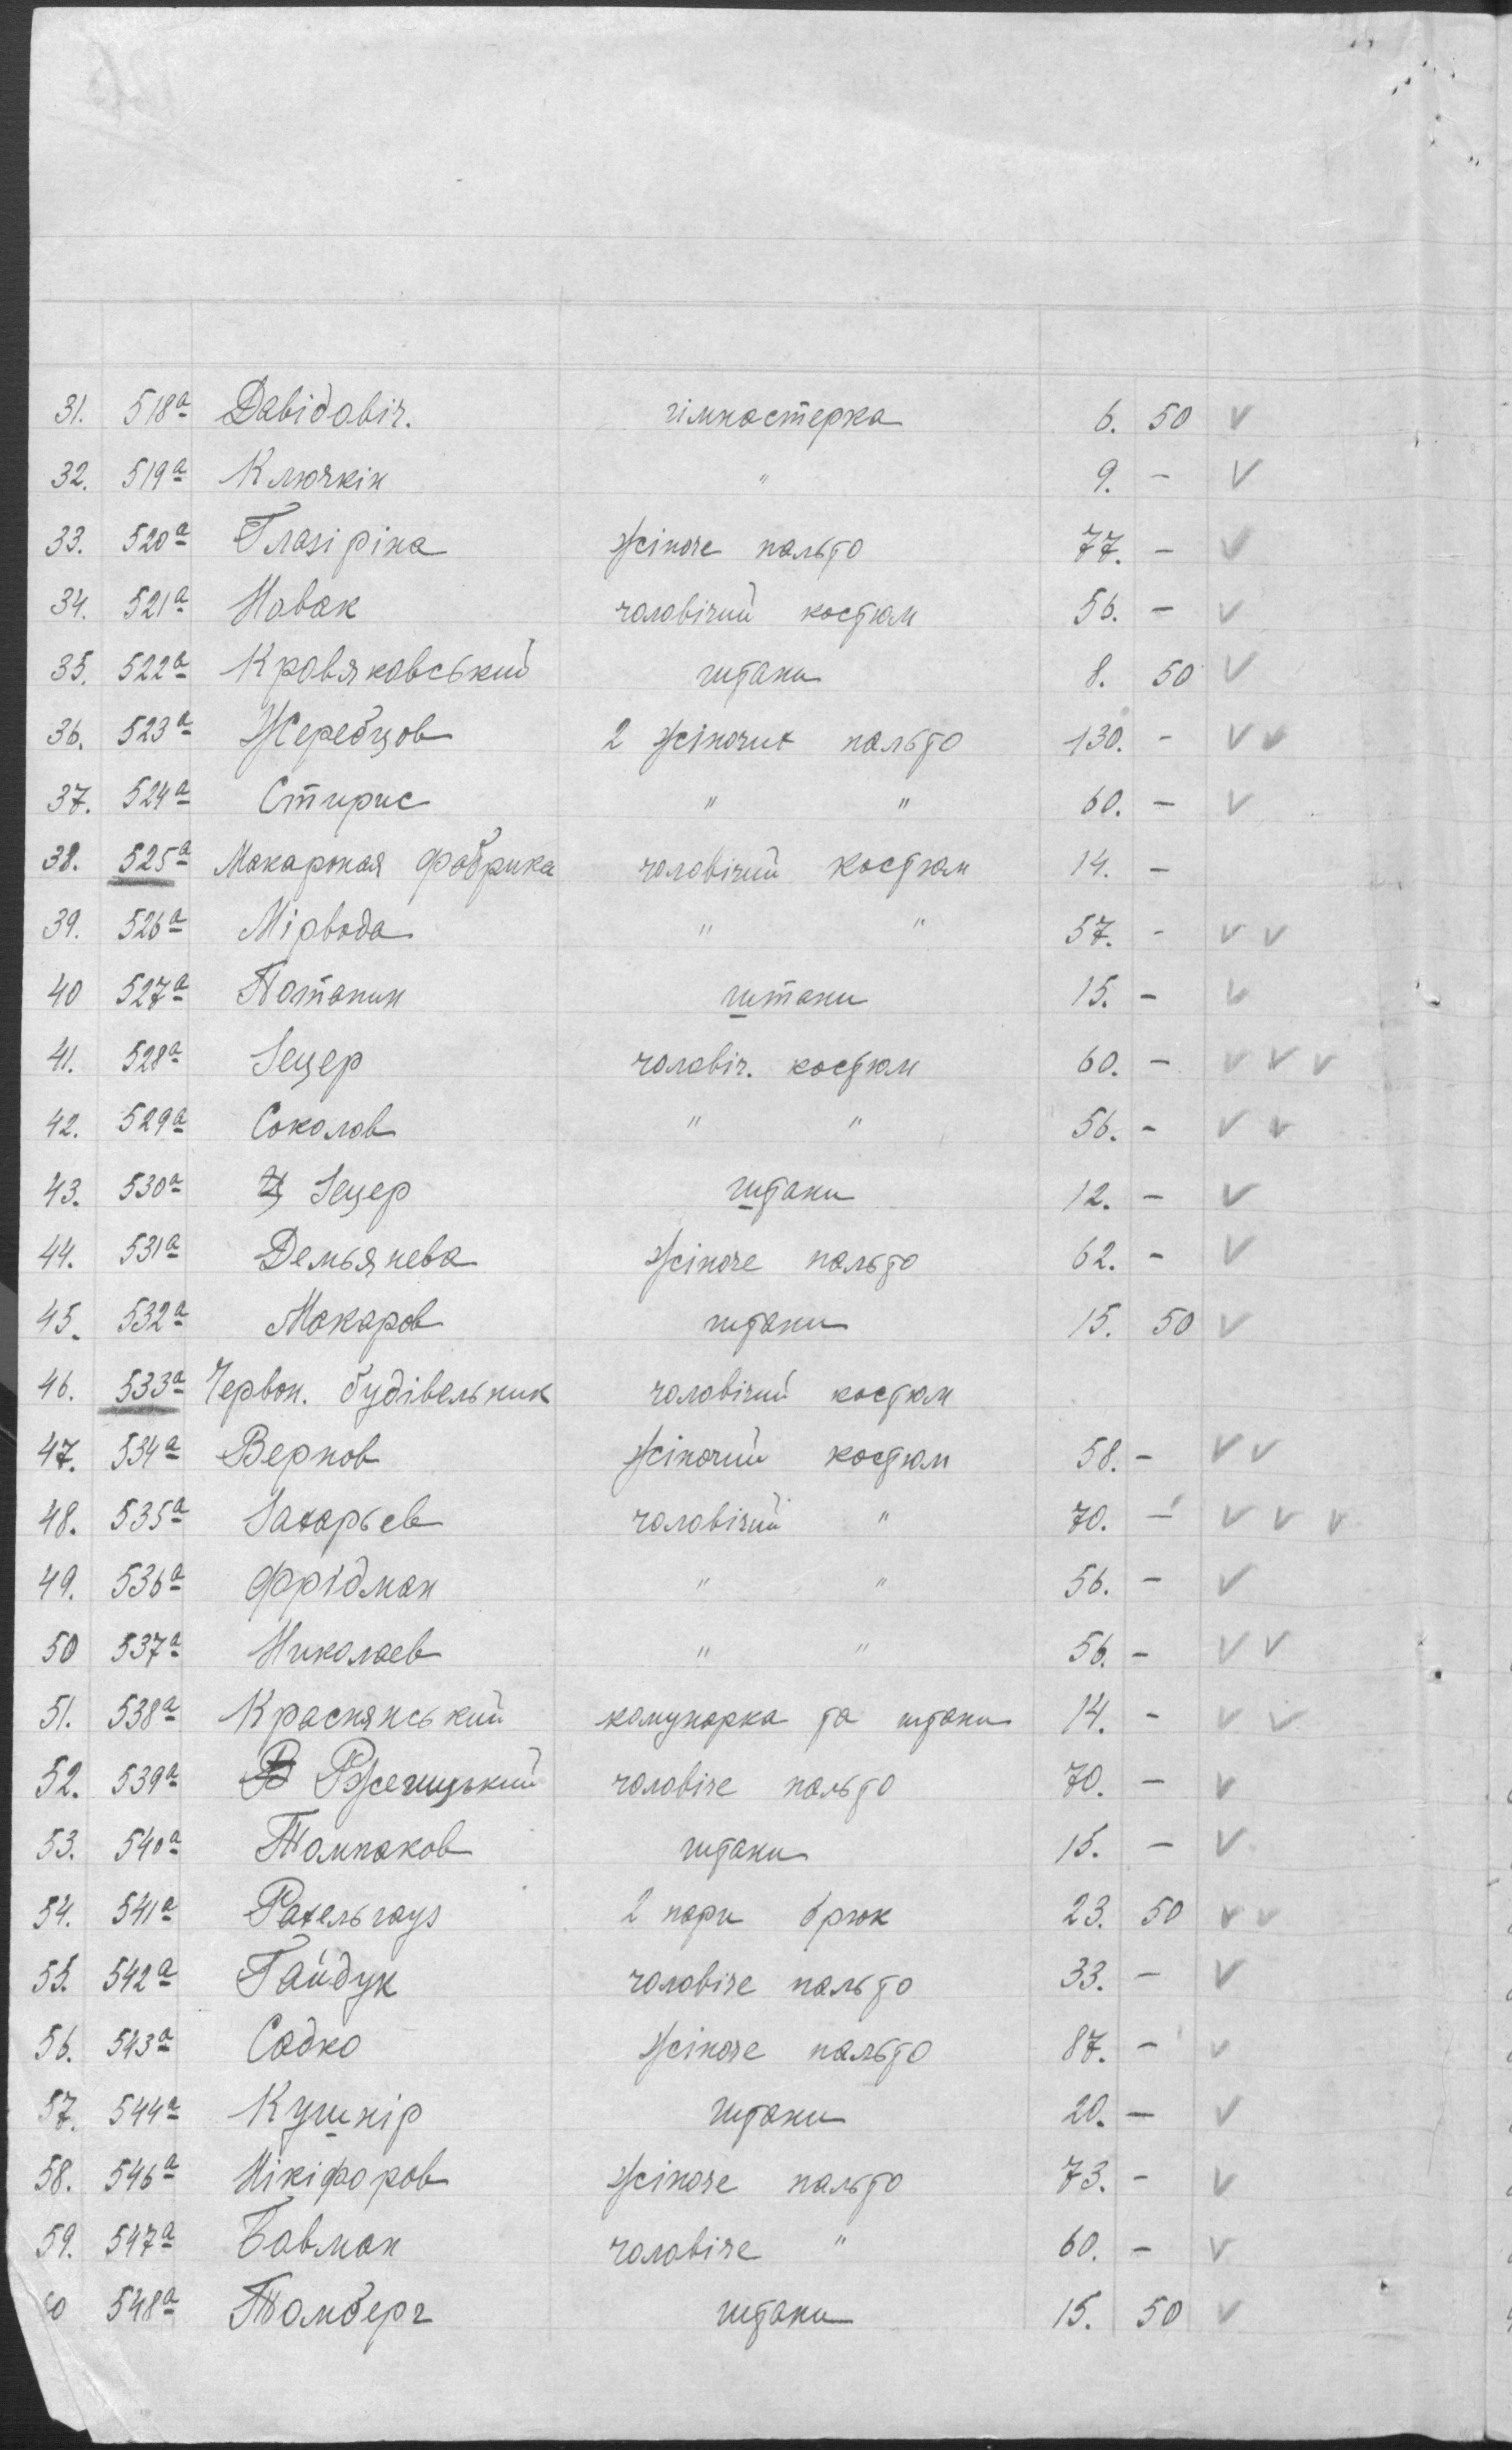 31. 518а Давідовіч. гімнастерка 6. 50 V
32. 519а Ключкін " 9. - V
33. 520а Глазіріна жіноче пальто 77. - V
34. 521а Новак чоловічий костюм 56. - V
35. 522а Кровяковський штани 8. 50 V
36. 523а Жеребцов 2 жіночих пальто 130. - V V
37. 524а Стирис " " 60. - V
38. 525а Макароная фабрика чоловічий костюм 14. -
39. 526а Мірвода " " 57. - V V
40 527а Потапин штани 15. - V
41. 528а Зецер чоловіч. костюм 60. - V V V
42. 529а Соколов " " 56. - V V
43. 530а Зецер штани 12. - V
44. 531а Демьянева жіноче пальто 62. - V
45. 532а Макаров штани 15. 50 V
46. 533а Червон. будівельник чоловічий костюм
47. 534а Вернов жіночий костюм 58. - V V
48. 535а Захарьев чоловічий " 70. - V V V
49. 536а Фрідман " " 56. - V
50 537а Николаев " " 56. - V V
51. 538а Краснянський комунарка та штани 14. - V V
52. 539а Ржечицький чоловіче пальто 70. - V
53. 540а Толпаков штани 15. - V
54. 541а Рахельгауз 2 пари брюк 23. 50 V V
55. 542а Гайдук чоловіче пальто 33. - V
56. 543а Садко жіноче пальто 87. - V
57. 544а Кушнір штани 20. - V
58. 546а Нікіфоров жіноче пальто 73. - V
59. 547а Бавман чоловіче " 60. - V
60 548а Томберг штани 15. 50 V